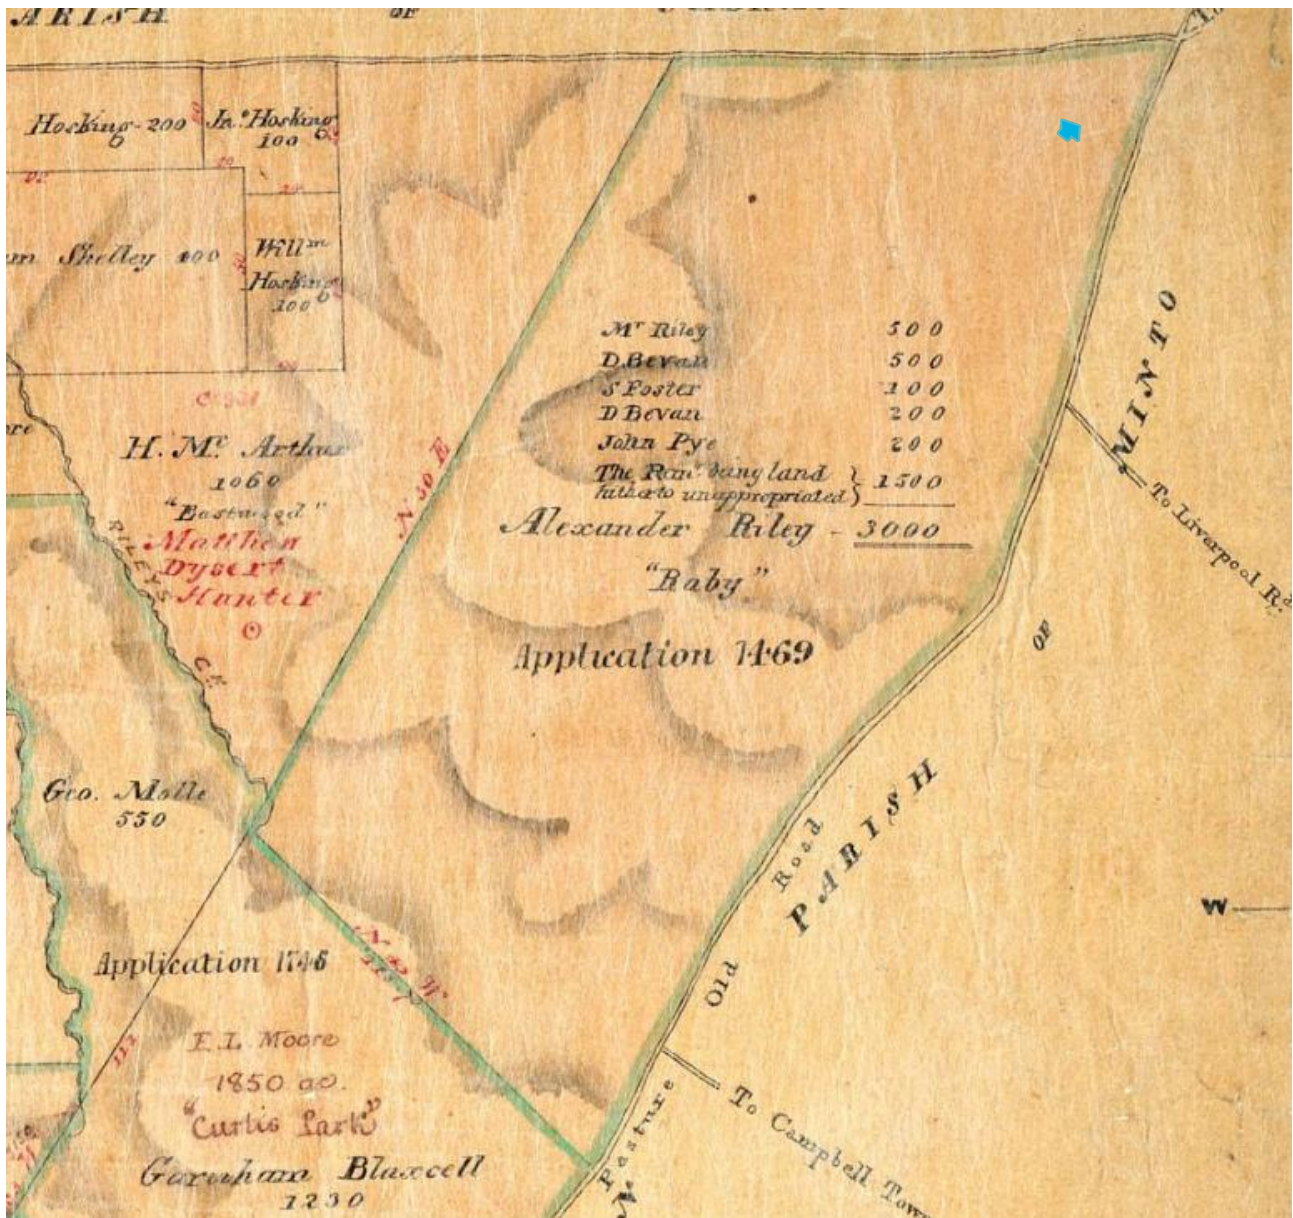 ARISH OF
Hosking-200
Jnº Hosking
100
Shelley 100
Willm
Hosking
100
H. Mc. Arthur
1060
"Eastwood"
Matthew
Dysert
Hunter
RILEYS
CK
N 30 E
Mr Riley 500
D.Bevan 500
S Foster 100
D Bevan 200
John Pye 200
The Remr being land
hitherto unappropriated } 1500
Alexander Riley - 3000
"Raby"
Application 1469
MINTO
OF
PARISH
To Liverpool Rd
Geo. Molle
550
Application 1746
E.L. Moore
1850 ac.
"Curtis Park"
Garnham Blaxcell
1230
Road
Old
Pasture
To Campbell Town
W